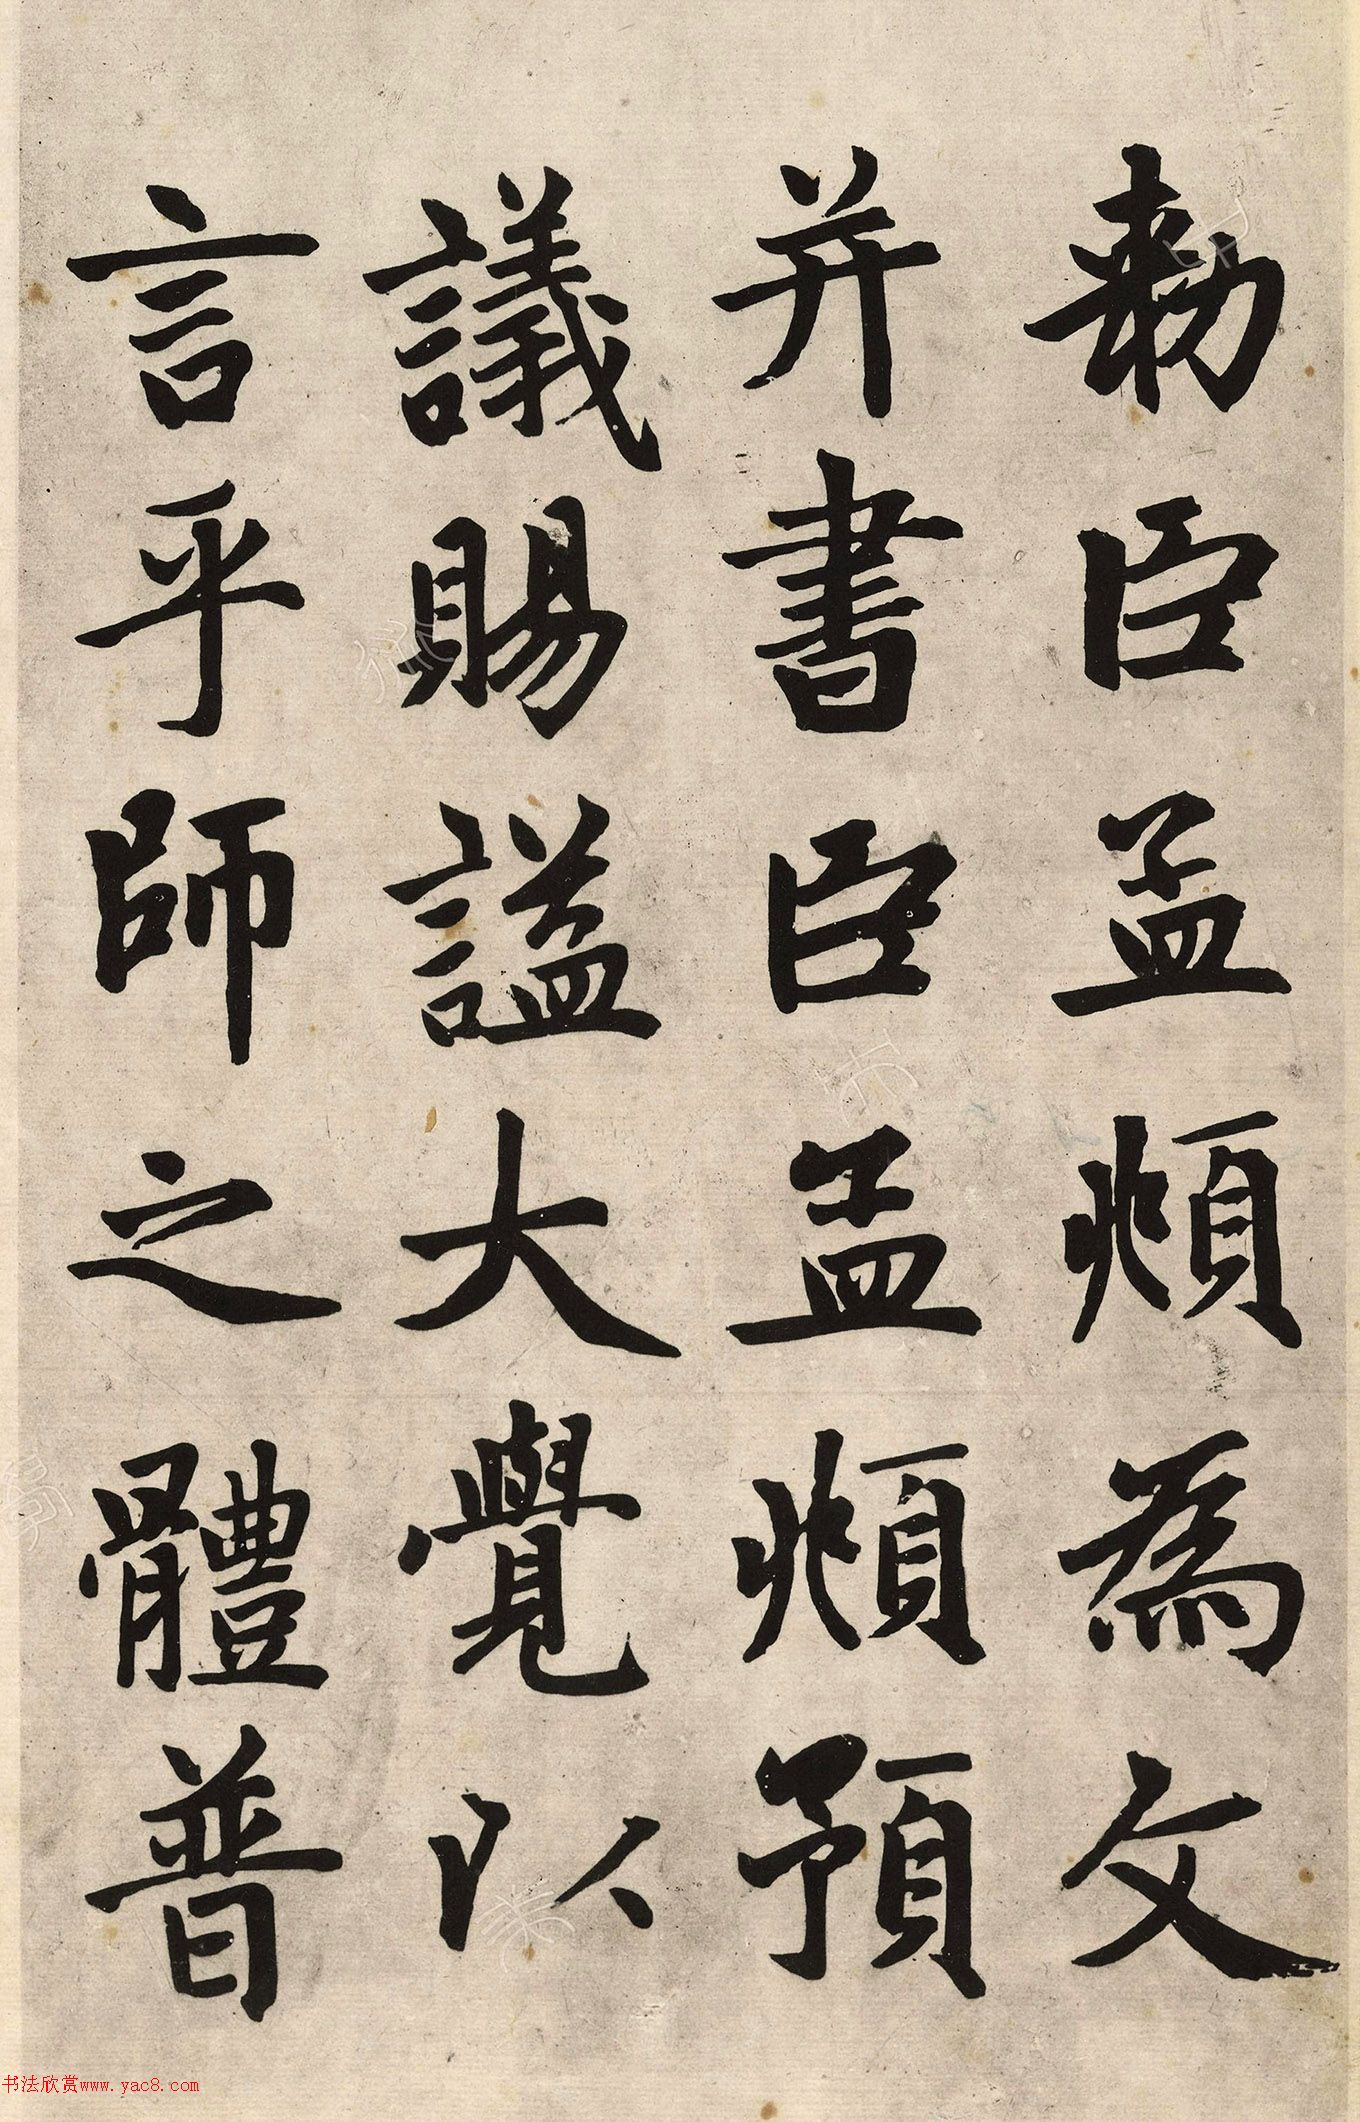 勅臣孟頫為文
并書臣孟頫預
議賜謚大覺以
言乎師之體普
书法欣赏www.yac8.com